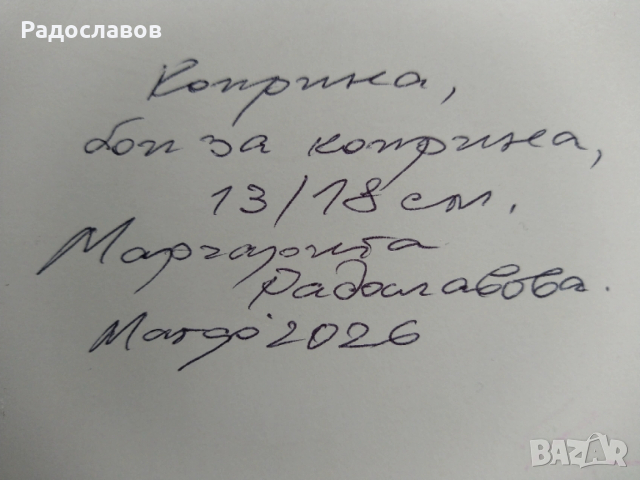 Радославов
Коприна,
бои за коприна,
13/18 см.
Маргарита
Радославова.
2026
BAZAR